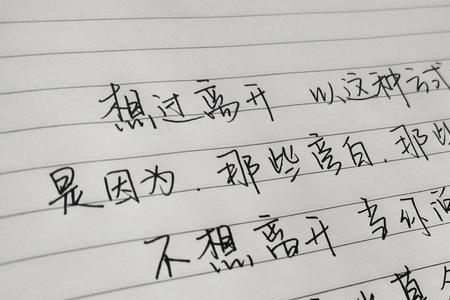 想过离开 以这种方式
是因为、那些旁白、那些
不想离开 当你说